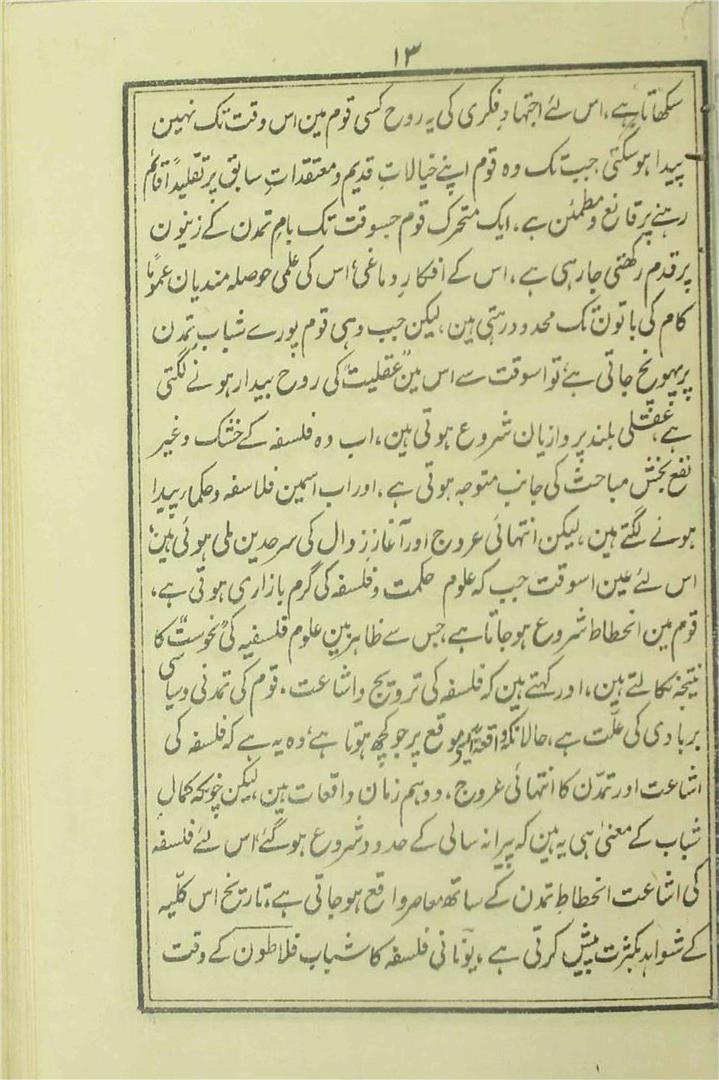 ۱۳
سکھاتا ہے، اس لئے اجتہادِ فکری کی یہ روح کسی قوم مین اس وقت تک نہین
پیدا ہوسکتی جب تک وہ قوم اپنے خیالاتِ قدیم و معتقداتِ سابق پر تقلیداً قائم
رہنے پر قانع و مطمئن ہے، ایک متحرک قوم جسوقت تک بامِ تمدن کے زینون
پر قدم رکھتی جارہی ہے، اس کے افکارِ دماغی، اس کی علمی حوصلہ مندیان عموماً
کام کی باتون تک محدود رہتی ہین، لیکن جب وہی قوم پورے شباب تمدن
پر پہونچ جاتی ہے تو اسوقت سے اس مین "عقلیت" کی روح بیدار ہونے لگتی
ہے، عقلی بلند پروازیان شروع ہوتی ہین، اب وہ فلسفہ کے خشک و غیر
نفع بخش مباحث کی جانب متوجہ ہوتی ہے، اور اب اسمین فلاسفہ و حکماء پیدا
ہونے لگتے ہین، لیکن انتہائی عروج اور آغازِ زوال کی سرحدین ملی ہوئی ہین،
اس لئے عین اسوقت جب کہ علوم حکمت و فلسفہ کی گرم بازاری ہوتی ہے،
قوم مین انحطاط شروع ہوجاتا ہے، جس سے ظاہر بین علوم فلسفیہ کی "نحوست" کا
نتیجہ نکالتے ہین، اور کہتے ہین کہ فلسفہ کی ترویج و اشاعت، قوم کی تمدنی و سیاسی
بربادی کی علّت ہے، حالانکہ واقعہ اس موقع پر جو کچھ ہوتا ہے، وہ یہ ہے کہ فلسفہ کی
اشاعت اور تمدّن کا انتہائی عروج، دو ہم زمان واقعات ہین، لیکن چونکہ کمالِ
شباب کے معنیٰ ہی یہ ہین کہ پیرانہ سالی کے حدود شروع ہوگئے، اس لئے فلسفہ
کی اشاعت انحطاطِ تمدن کے ساتھ معاصر واقع ہوجاتی ہے، تاریخ اس کلّیہ
کے شواہد بکثرت پیش کرتی ہے، یونانی فلسفہ کا شباب فلاطون کے وقت